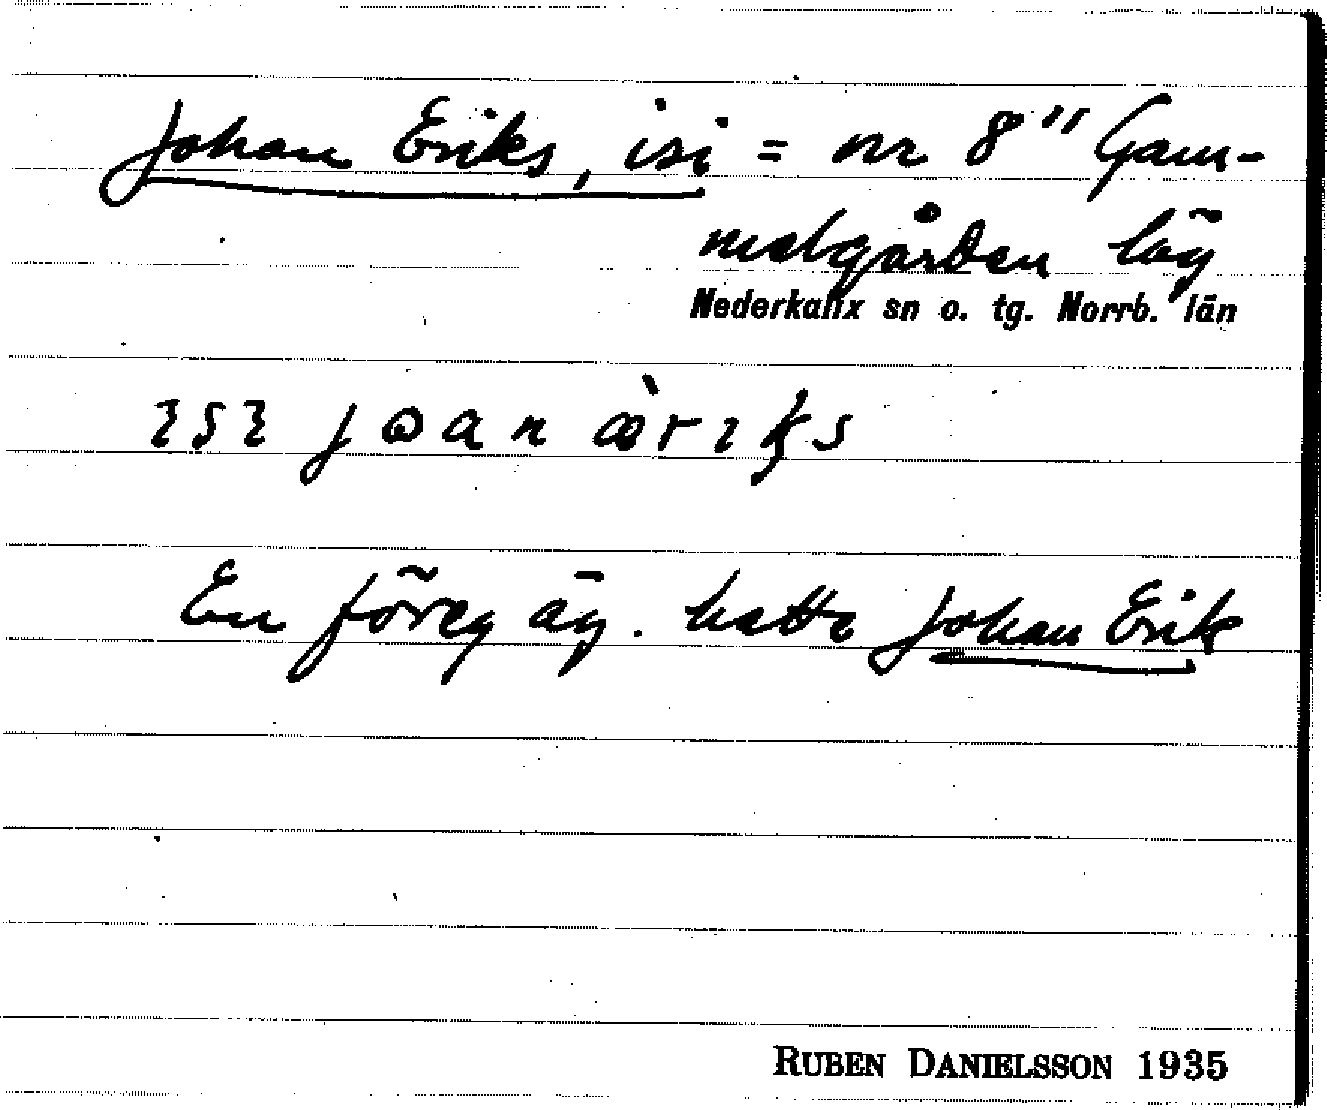 Johan Eriks, isi = nr 8" Gam-
melgården läg
Nederkalix sn o. tg. Norrb. län
ısı joan ærıks
En föreg äg. hette Johan Erik
RUBEN DANIELSSON 1935